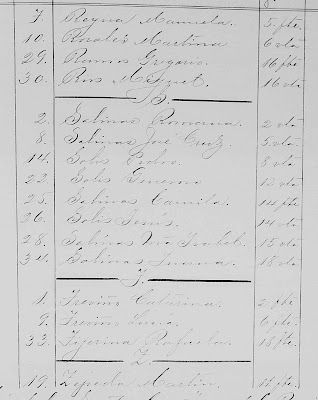 7. Reyna Manuela 5 fte
10. Rosales Martina 6 vta
29. Ramos Gregorio 16 fte
30. Ros Miguel 16 vta
S.
2. Salinas Romana. 2 vta
8. Salinas José Cruz. 5 vta
14. Solis Pedro. 8 vta
22. Solis Genaro 12 vta
25. Salinas Camila. 14 fte
26. Solis Jesús. 14 vta
28. Salinas Ma Isabel. 15 vta
34. Salinas Juana. 18 vta
T.
1. Treviño Caterina. 2 fte
9. Treviño Luisa. 6 fte
33. Tijerina Rafaela. 18 fte
Z
19. Zepeda Martin. 11 fte